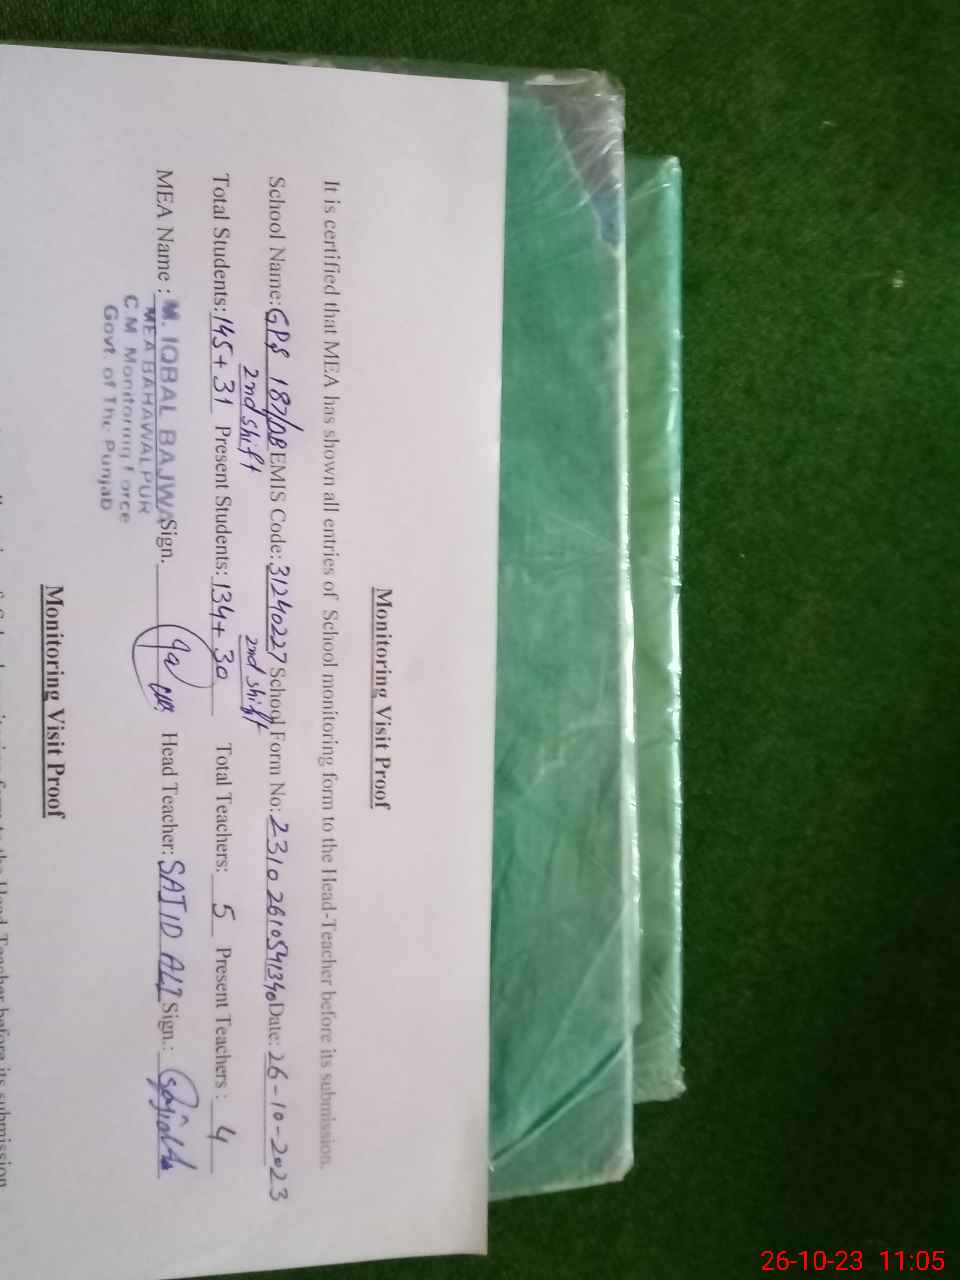 Monitoring Visit Proof
It is certified that MEA has shown all entries of School monitoring form to the Head-Teacher before its submission.
School Name: GPS 187/DB EMIS Code: 31240227 School Form No: 2310261054134o Date: 26-10-2023
2nd shift 2nd shift
Total Students: 145+31 Present Students: 134+30 Total Teachers: 5 Present Teachers : 4
MEA Name : M. IQBAL BAJWA Sign. Head Teacher: SAJID ALI Sign.: Sajid Ali
MEA BAHAWALPUR
C.M Monitoring Force
Govt. of The Punjab
Monitoring Visit Proof
form to the Head-Teacher before its submission
26-10-23 11:05